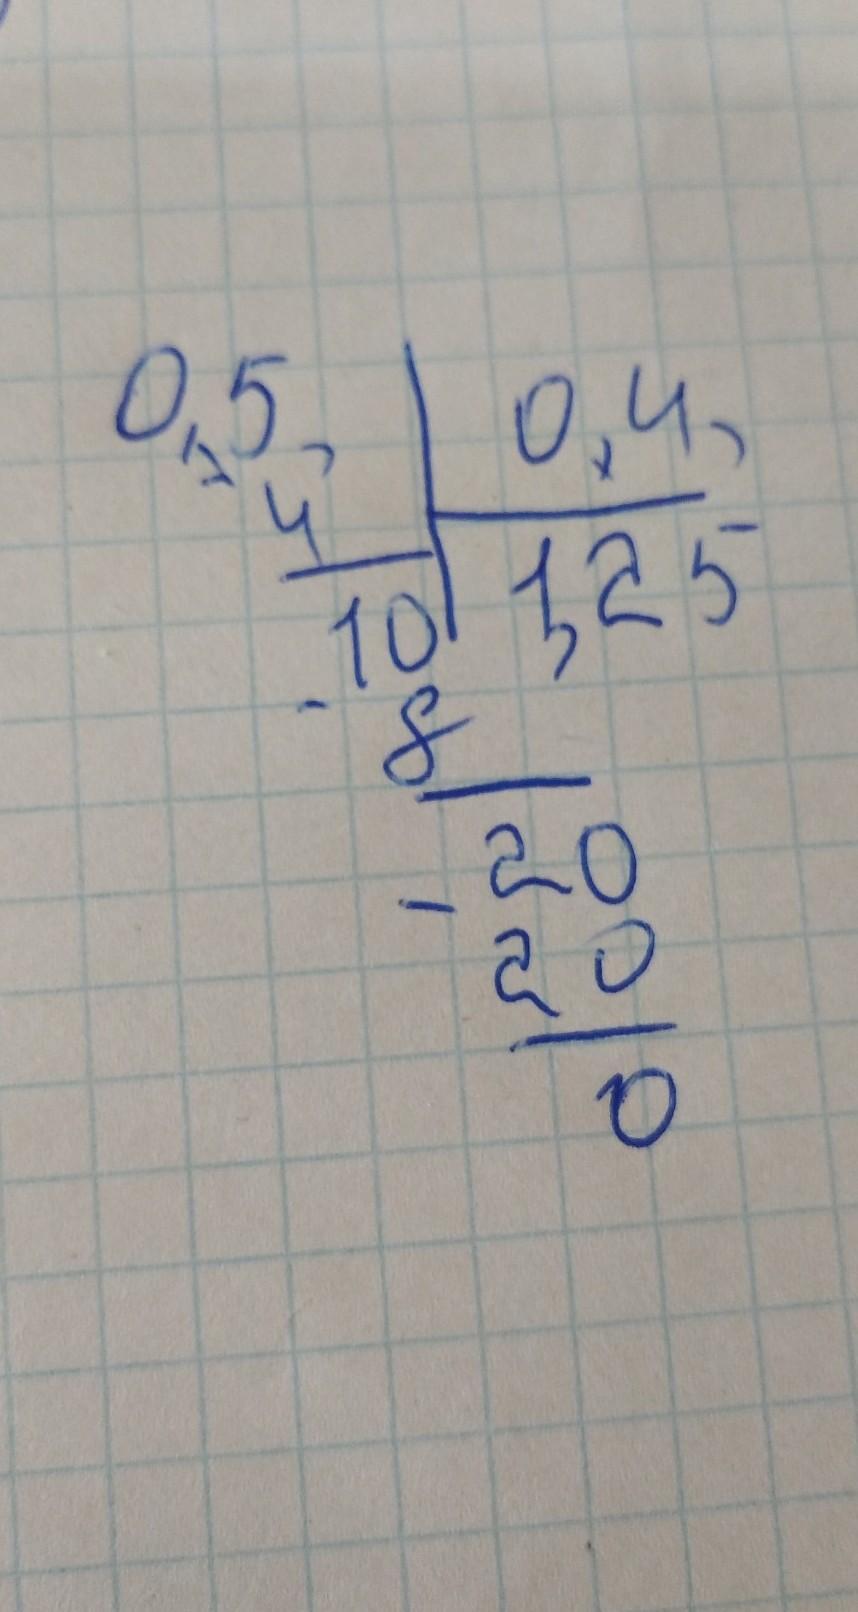 0,5, 0,4,
4 1,25
10
- 8
20
- 20
0